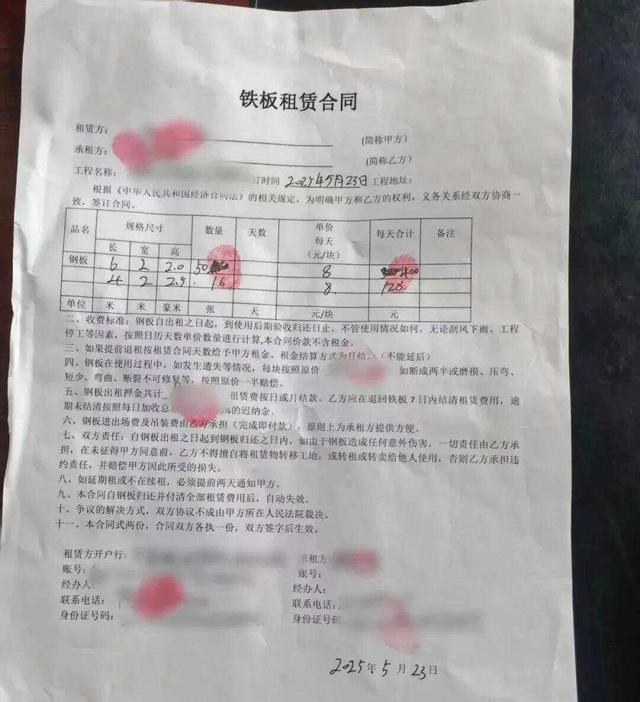 铁板租赁合同
租赁方： (简称甲方)
承租方： (简称乙方)
工程名称： 时间 2025年5月23日 工程地址：
根据《中华人民共和国经济合同法》的相关规定，为明确甲方和乙方的权利，义务关系经双方协商一
致，签订合同。
品名 规格尺寸 数量 天数 单价 每天 (元/块) 每天合计 备注
长 宽 高
钢板 6 2 2.0 50 8 400
4 2 16 8 128
单位 米 米 毫米 张 天 元/块 元
二、收费标准：钢板自出租之日起，到使用后期验收归还日止，不管使用情况如何，无论刮风下雨、工程
停工等因素，按照日历天数单价数量进行计算,本合同价款不含税金。
三、如果提前退租按租赁合同天数给予甲方租金。租金结算方式为月结。（不能延后）
四、钢板在使用过程中，如发生遗失等情况，每块按照原价 如断成两半或磨损、压弯、
短少、弯曲、断裂不可修复等，按照原价一半赔偿。
五、钢板出租押金共计 租赁费按日或月结款。乙方应在退回铁板 7 日内结清租赁费用，逾
期未结清按照每日加收总 %的迟纳金。
六、钢板进出场费及吊装费由乙方承担（完成即付款），原则上为承租方提供方便。
七、双方责任：自钢板出租之日起到钢板归还之日内，如由于钢板造成任何意外伤害，一切责任由乙方承
担，在未征得甲方同意前，乙方不得擅自将租赁物转移工地，或转租或转卖给他人使用，否则乙方承担违
约责任，并赔偿甲方因此所受的损失。
八、如延期租或不在续租，必须提前两天通知甲方。
九、本合同自钢板归还并付清全部租赁费用后，自动失效。
十、争议的解决方式，双方协议不成由甲方所在人民法院裁决。
十一、本合同式两份，合同双方各执一份，双方签字后生效。
租赁方开户行： 承租方
账号： 账号：
经办人： 经办人：
联系电话： 联系电话：
身份证号码： 身份证号码：
2025年 5 月 23日